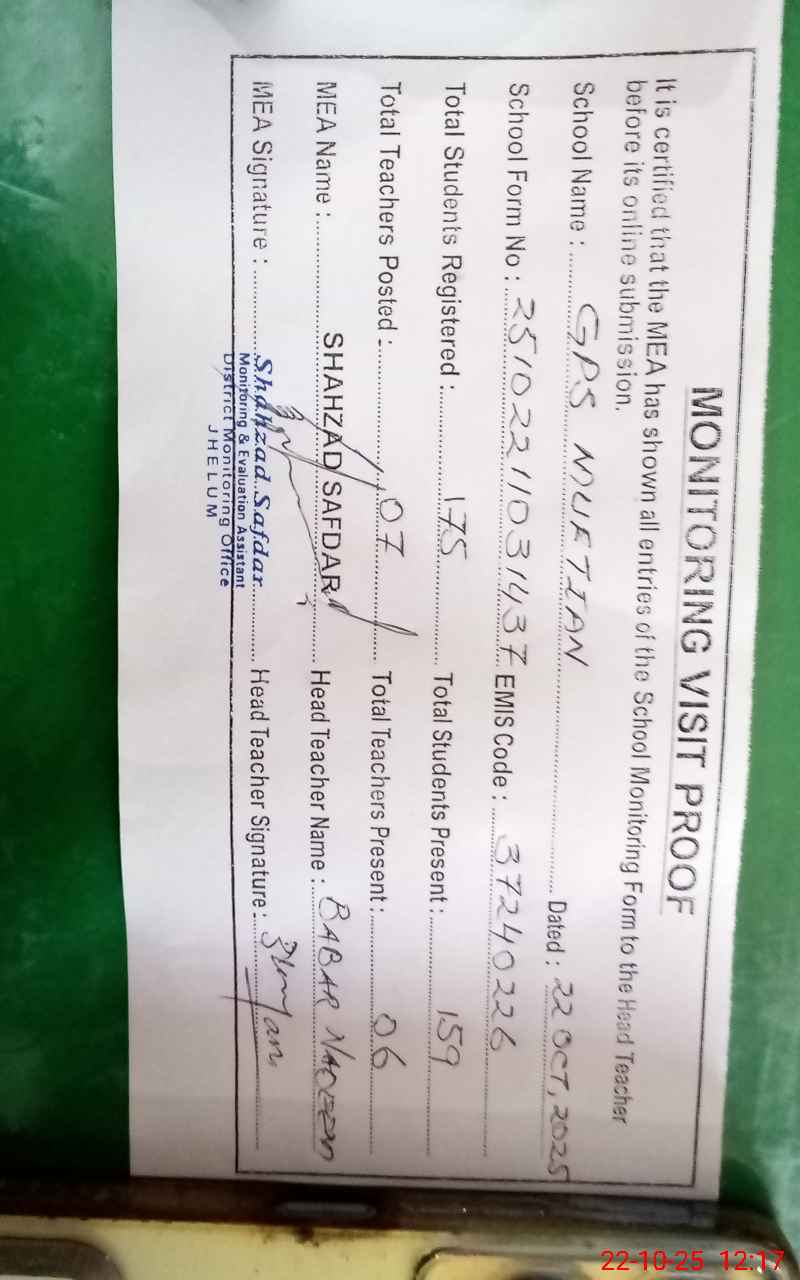 MONITORING VISIT PROOF
It is certified that the MEA has shown all entries of the School Monitoring Form to the Head Teacher
before its online submission.
School Name : GPS MUFTIAN Dated : 22 OCT, 2025
School Form No : 25102211031437 EMIS Code : 37240226
Total Students Registered : 175 Total Students Present : 159
Total Teachers Posted : 07 Total Teachers Present : 06
MEA Name : SHAHZAD SAFDAR Head Teacher Name : BABAR NADEEM
MEA Signature : Shahzad Safdar Head Teacher Signature :
Monitoring & Evaluation Assistant
District Monitoring Office
JHELUM
22-10-25 12:17